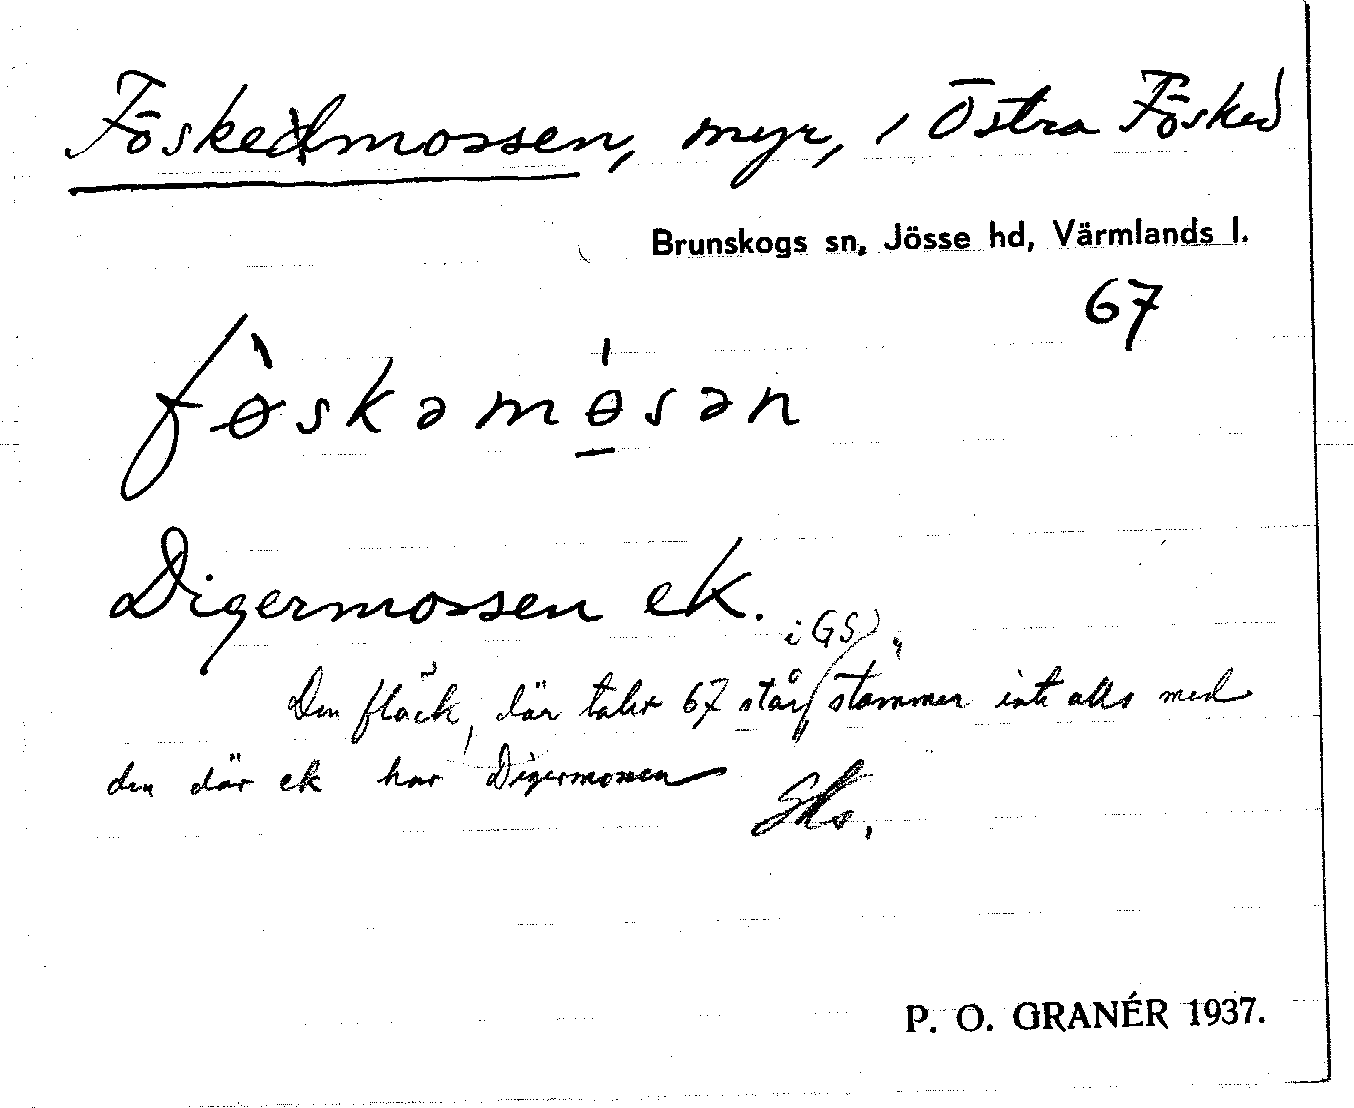 Föskedmossen, myr, i Östra Fösked
Brunskogs sn, Jösse hd, Värmlands l.
67
fø̀skəmǿ̱sən
Digermossen ek.
i GS
Den fläck, där talet 67 står stämmer inte alls med
den där ek har Digermossen
P. O. GRANÉR 1937.